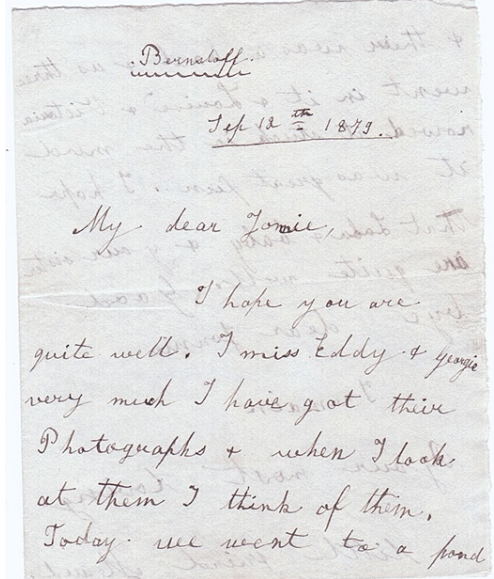 Bernstoff.
Sep 12th 1879.
My dear Tomie,
I hope you are
quite well. I miss Eddy & Georgie
very much I have got their
Photographs & when I look
at them I think of them.
Today we went to a pond